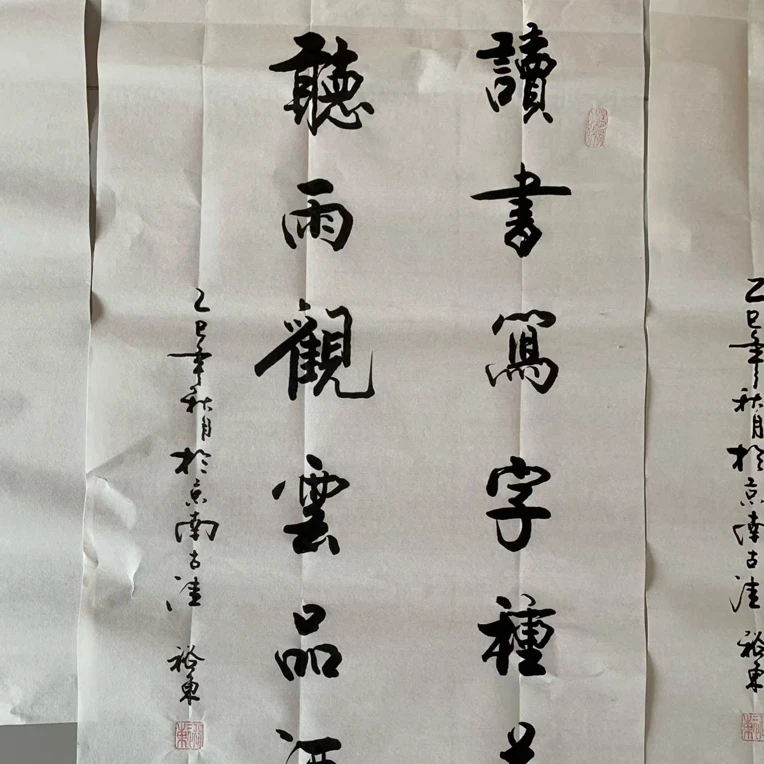 讀書寫字種
聽雨觀雲品
乙巳年秋月於京南古洼 裕東
乙巳年秋月於京南古洼 裕東